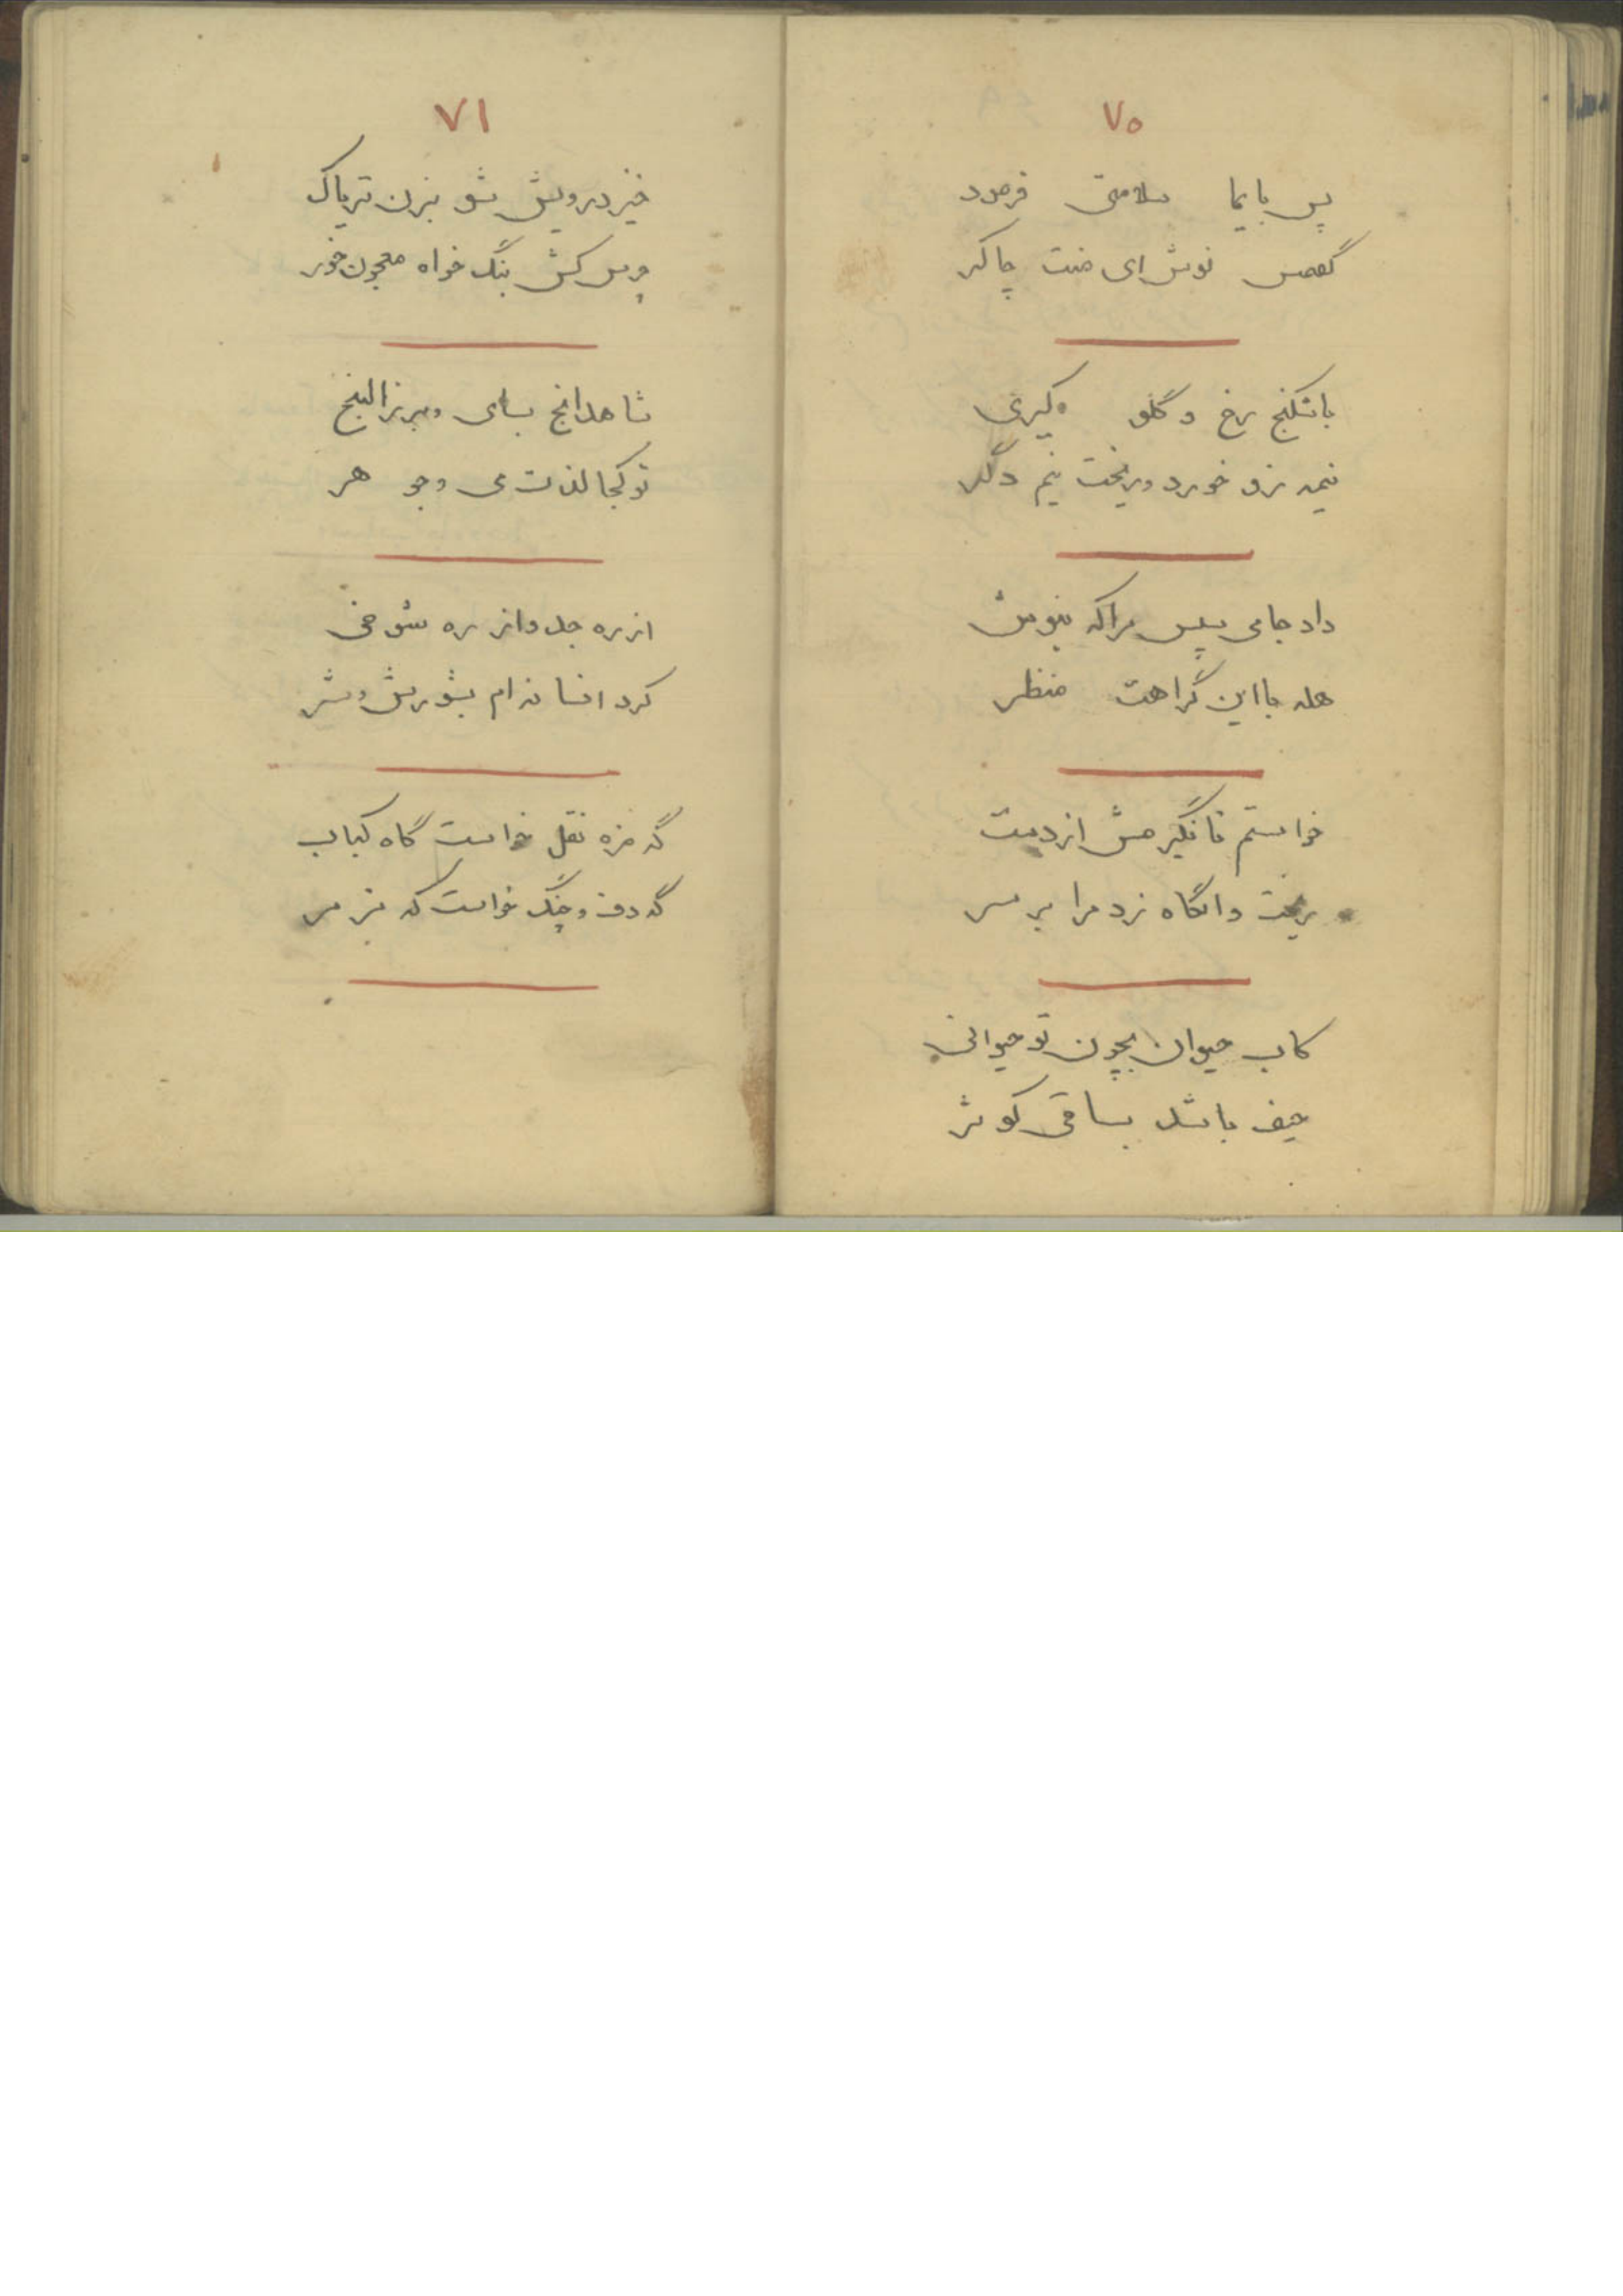 ۷۰
پس بایما سلامتی فرمود
گفتمش نوش ای منت چاکر
باشکنج رخ و گلو گیری
نیمه زو خورد و ریخت نیم دگر
داد جامی سپس مرا که بنوش
هله با این کراهت منظر
خواستم تا نگیرمش از دست
ریخت وانگاه زد مرا بر سر
کاب حیوان بچون تو حیوانی
حیف باشد بساقی کوثر
۷۱
خیز درویش شو بزن تریاک
چرس کش بنگ خواه معجون خور
شاهدانج بسای و بزرالبنج
تو کجا لذت می و جو هر
از ره جد و از ره شوخی
کرد افسانه ام بشورش و شر
گه مزه نقل خواست گاه کباب
گه دف و چنگ خواست که مزمر